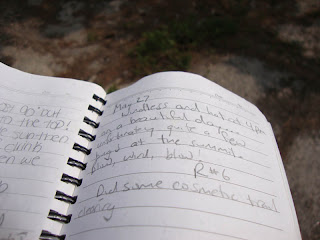 go out
to the top!
sun then
climb
en we
May 27
Windless and hot
on a beautiful day...
unfortunately quite a few
bugs at the summit.
Blow, wind, blow!
R#6
Did some cosmetic trail
clearing